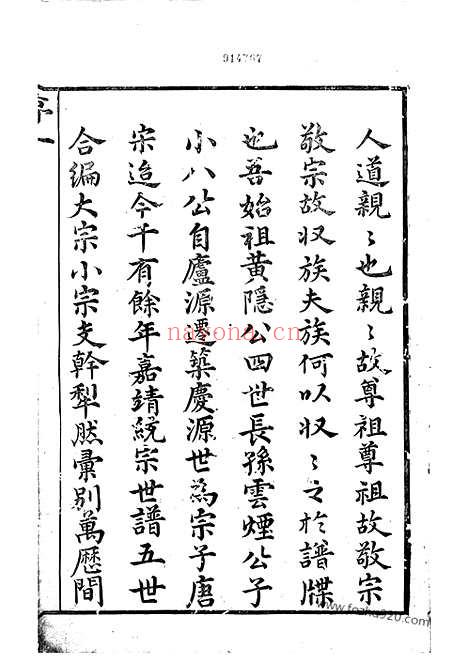 914767
人道親〻也親〻故尊祖尊祖故敬宗
敬宗故収族夫族何以収〻之於譜牒
也吾始祖黃隱公四世長孫雲煙公子
小八公自廬源遷築慶源世為宗子唐
宋迨今千有餘年嘉靖統宗世譜五世
合編大宗小宗支幹犁然彙別萬曆間
序一
nayona.cn
www.fozhu920.com